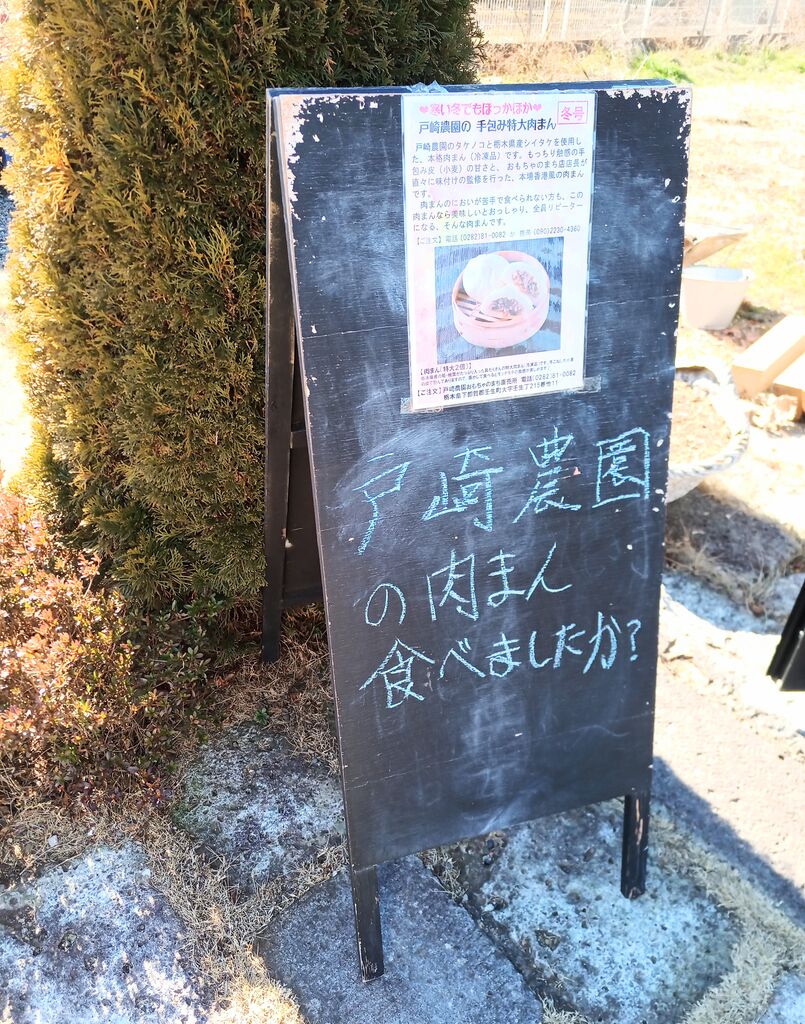 ♥寒い冬でもほっかほか♥
冬号
戸崎農園の 手包み特大肉まん
戸崎農園のタケノコと栃木県産シイタケを使用し
た、本格肉まん（冷凍品）です。もっちり触感の手
包み皮（小麦）の甘さと、おもちゃのまち店店長が
直々に味付けの監修を行った、本場香港風の肉まん
です。
肉まんのにおいが苦手で食べられない方も、この
肉まんなら美味しいとおっしゃり、全員リピーター
になる、そんな肉まんです。
【ご注文】電話 (0282)81-0082 か 携帯 (090)2230-4360
【肉まん（特大2個）】
【ご注文】戸崎農園おもちゃのまち直売所 電話(0282)81-0082
栃木県下都賀郡壬生町大字壬生丁215番地11
戸崎農園
の肉まん
食べましたか?